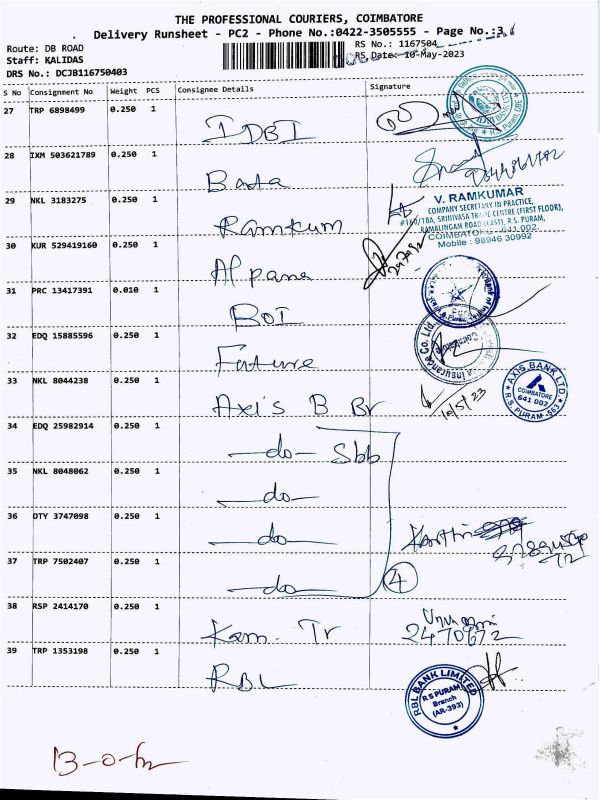 THE PROFESSIONAL COURIERS, COIMBATORE
Delivery Runsheet - PC2 - Phone No.:0422-3505555 - Page No.:3
Route: DB ROAD
RS No.: 1167504
Staff: KALIDAS
RS Date: 10-May-2023
DRS No.: DCJB116750403
S No Consignment No Weight PCS Consignee Details Signature
27 TRP 6898499 0.250 1 IDBI
IDBI BANK LTD
R.S. Puram, CBE
28 IXM 503621789 0.250 1 Bata
29 NKL 3183275 0.250 1 Ramkum
V. RAMKUMAR
COMPANY SECRETARY IN PRACTICE,
#160/18A, SRINIVASA TRADE CENTRE (FIRST FLOOR),
RAMALINGAM ROAD (EAST), R.S. PURAM,
COIMBATORE - 641 002.
Mobile : 98946 30992
30 KUR 529419160 0.250 1 Alpana
31 PRC 13417391 0.010 1 BOI
32 EDQ 15885596 0.250 1 Future
Insurance Co. Ltd.
33 NKL 8044238 0.250 1 Axis B Br
10/5/23
AXIS BANK LTD
COIMBATORE
641 002
R.S. PURAM
34 EDQ 25982914 0.250 1 -do- Sbb
35 NKL 8048062 0.250 1 -do-
36 DTY 3747098 0.250 1 -do-
37 TRP 7502407 0.250 1 -do-
4
38 RSP 2414170 0.250 1 Kam. Tr
2470672
39 TRP 1353198 0.250 1 RBL
RBL BANK LIMITED
R S PURAM
Branch
(AR-393)